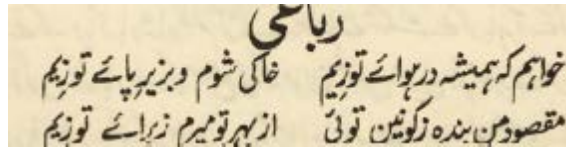 رباعی
خواہم کہ ہمیشہ در ہوائے تو زیم خاکی شوم و بزیر پائے تو زیم
مقصود من بندہ ز کونین توئی از بہر تو میرم ز برائے تو زیم